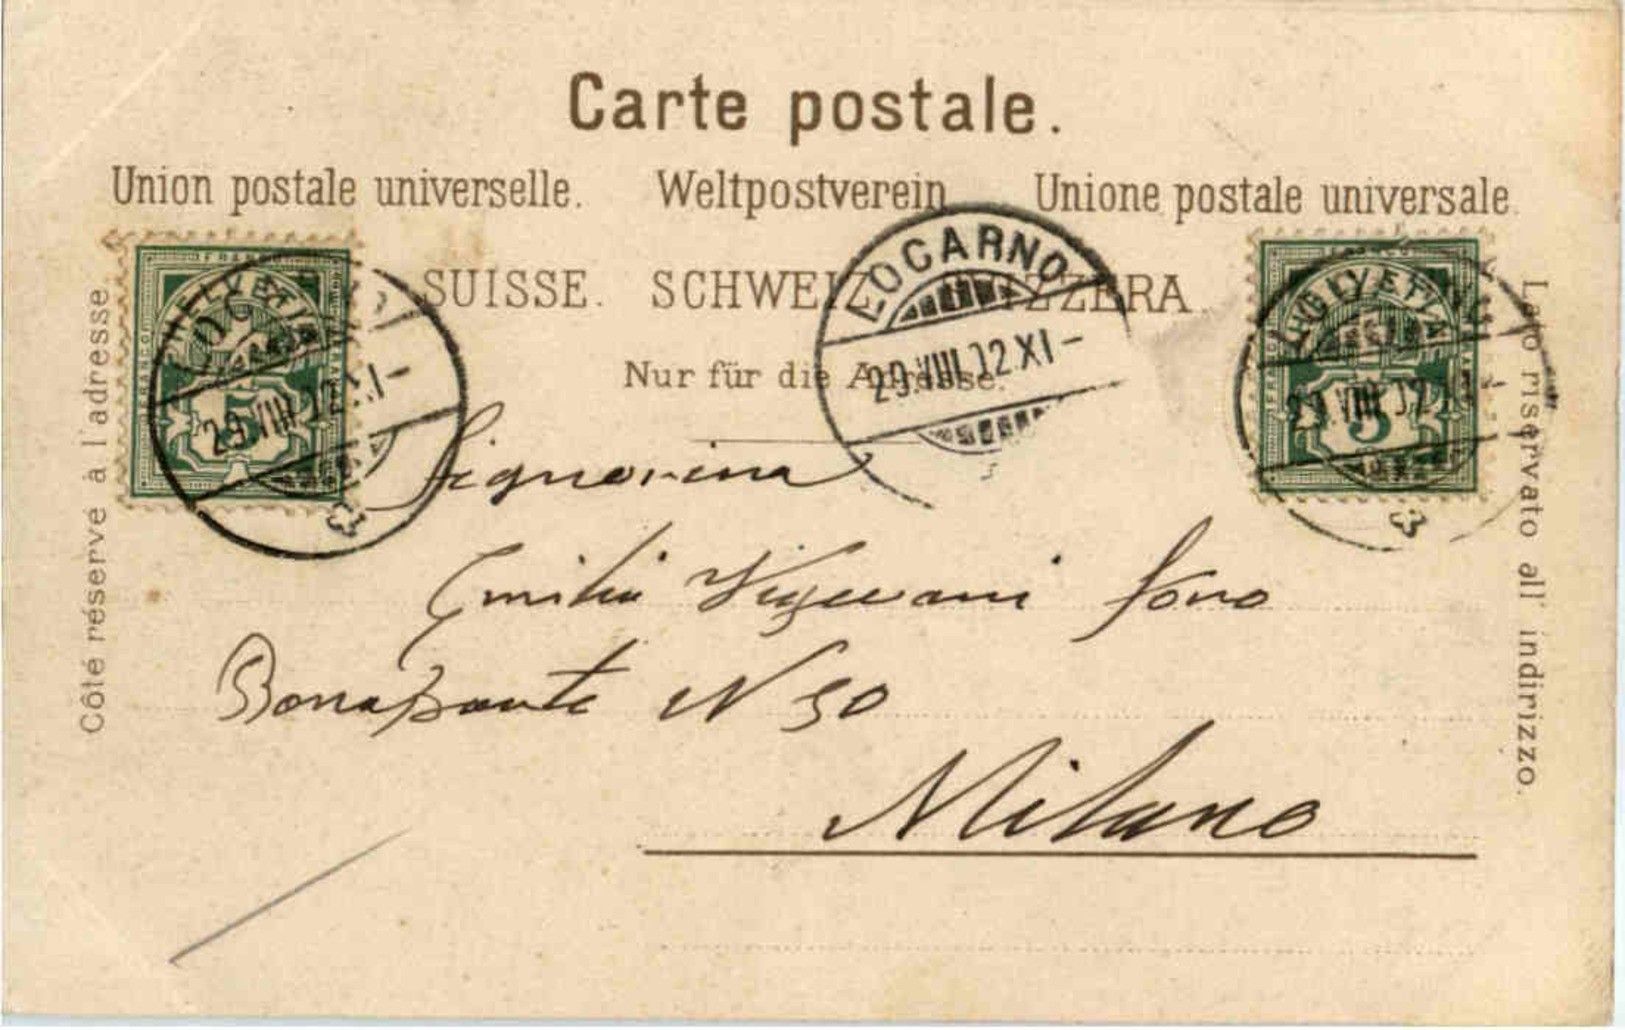 Carte postale.
Union postale universelle. Weltpostverein Unione postale universale.
SUISSE. SCHWEIZ ZZERA.
Nur für die Adresse.
Côté réservé à l'adresse.
Lato riservato all' indirizzo.
HELVETIA
5
29.VIII.02.XI-
LOCARNO
29.VIII.02.XI-
HELVETIA
5
Signorina
Emilia Vigevani Foro
Bonaparte N 50
Milano